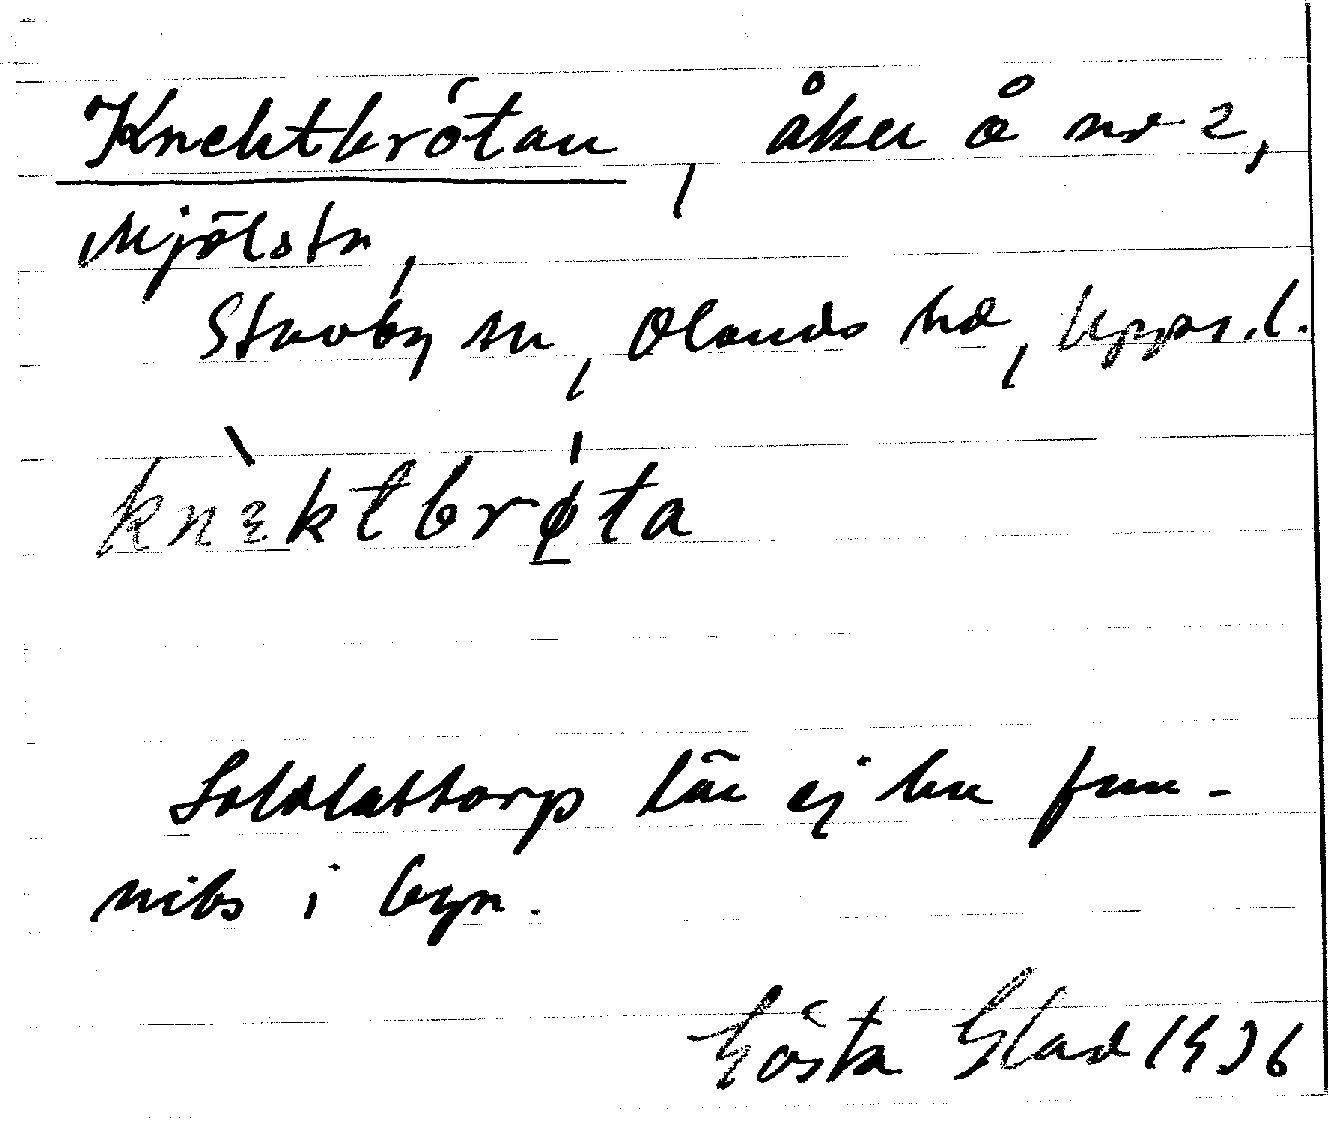 Knektbrötan, åker å nr 2,
Mjölsta,
Stavby sn, Olands hd, Upps. l.
knɛ̀ktbrø̀ta
Soldattorp lär ej ha fun-
nits i byn.
Gösta Stad 1936